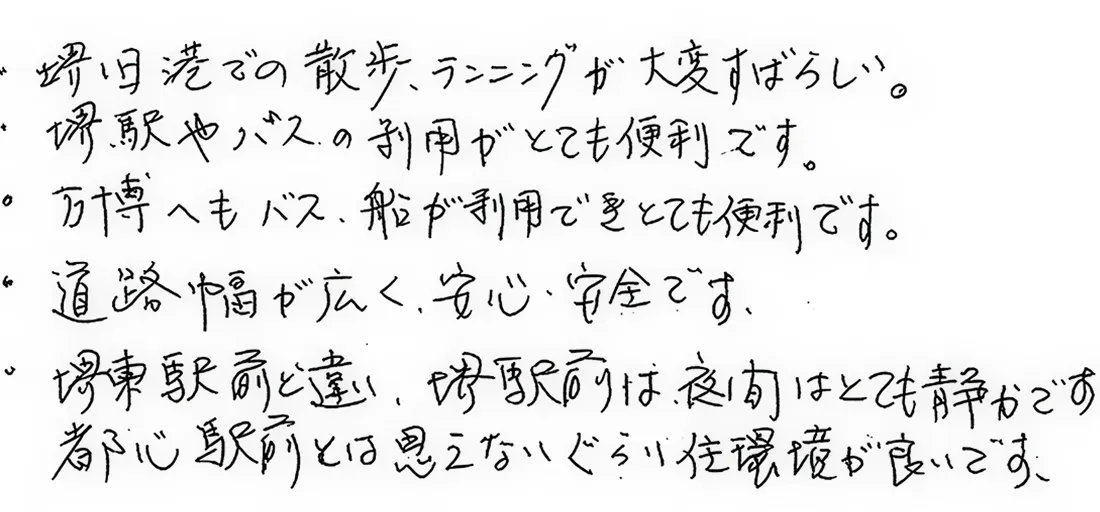 ・堺旧港での散歩、ランニングが大変すばらしい。
・堺駅やバスの利用がとても便利です。
・万博へもバス、船が利用できとても便利です。
・道路幅が広く、安心・安全です、
・堺東駅前と違い、堺駅前は夜間はとても静かです
都心駅前とは思えないぐらい住環境が良いです、